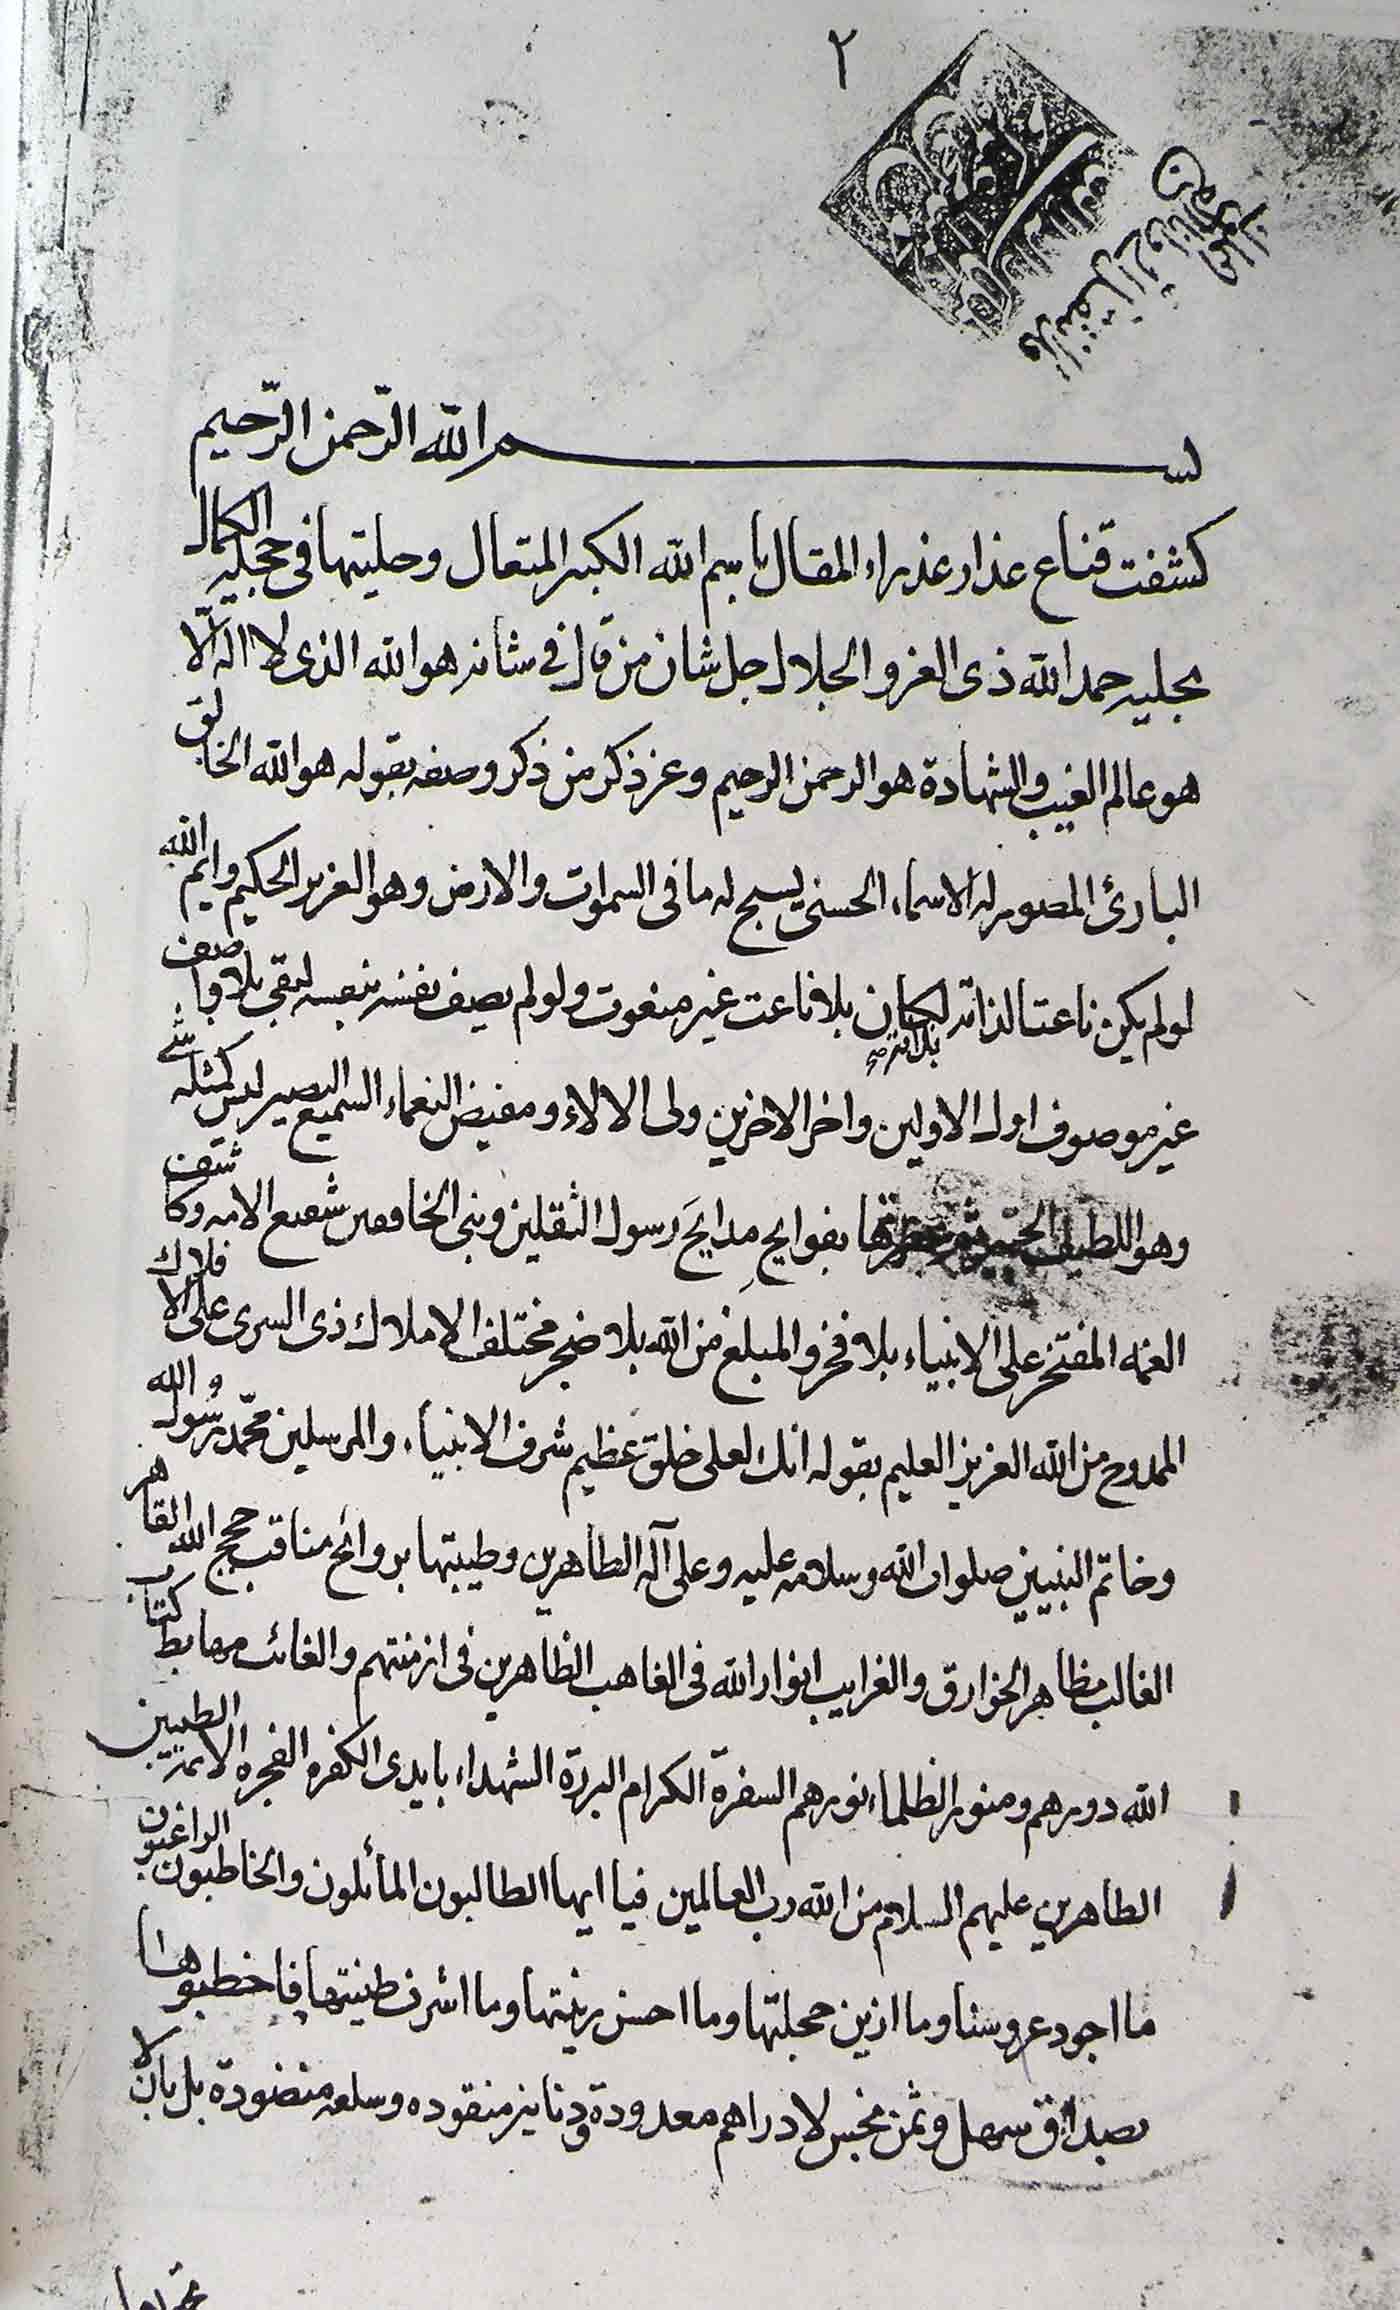 ٢
بسم الله الرحمن الرحيم
كشفت قناع عذار عذراء المقال باسم الله الكبير المتعال وحليتها فى حجلة الكمال
بحليه حمد الله ذى العز والجلال جل شان من قال فى شانه هو الله الذى لا اله الا
هو عالم الغيب والشهادة هو الرحمن الرحيم وعز ذكر من ذكر وصفه بقوله هو الله الخالق
البارئ المصور له الاسماء الحسنى يسبح له ما فى السموات والارض وهو العزيز الحكيم وايم الله
لو لم يكن ناعتا لذاته لكان بلا ناعت غير منعوت ولو لم يصف نفسه بنفسه لبقى بلا واصف
غير موصوف اول الاولين واخر الاخرين ولى الالاء ومفيض النعماء السميع البصير ليس كمثله شئ
وهو اللطيف الخبير بفوايح مدايح رسول الثقلين ونبى الخافقين شفيع الامه وكاشف
الغمه المفتخر على الانبياء بلا فخر والمبلغ من الله بلا ضجر مختلف الاملاك ذى السرى على الافلاك
الممدوح من الله العزيز العليم بقوله انك لعلى خلق عظيم شرف الانبياء والمرسلين محمد رسول الله
وخاتم النبيين صلوات الله وسلامه عليه وعلى آله الطاهرين وطيبتها بروائح مناقب حجج الله القاهر
الغالب مظاهر الخوارق والغرايب انوار الله فى الغاهب الظاهرين فى ازمنتهم والغائب مهابط كتاب
الله دورهم ومنور الظلماء نورهم السفرة الكرام البررة الشهداء بايدى الكفره الفجره الائمه الطيبين
الطاهرين عليهم السلام من الله رب العالمين فيا ايها الطالبون المأئلون والخاطبون الراغبون
ما اجود عروسنا وما ازين حجلتها وما احسن زينتها وما اشرف طينتها فاخطبوها
بصداق سهل وثمن بخس لا دراهم معدودة ودنانير منقوده وسلعه منضودة بل بان لا